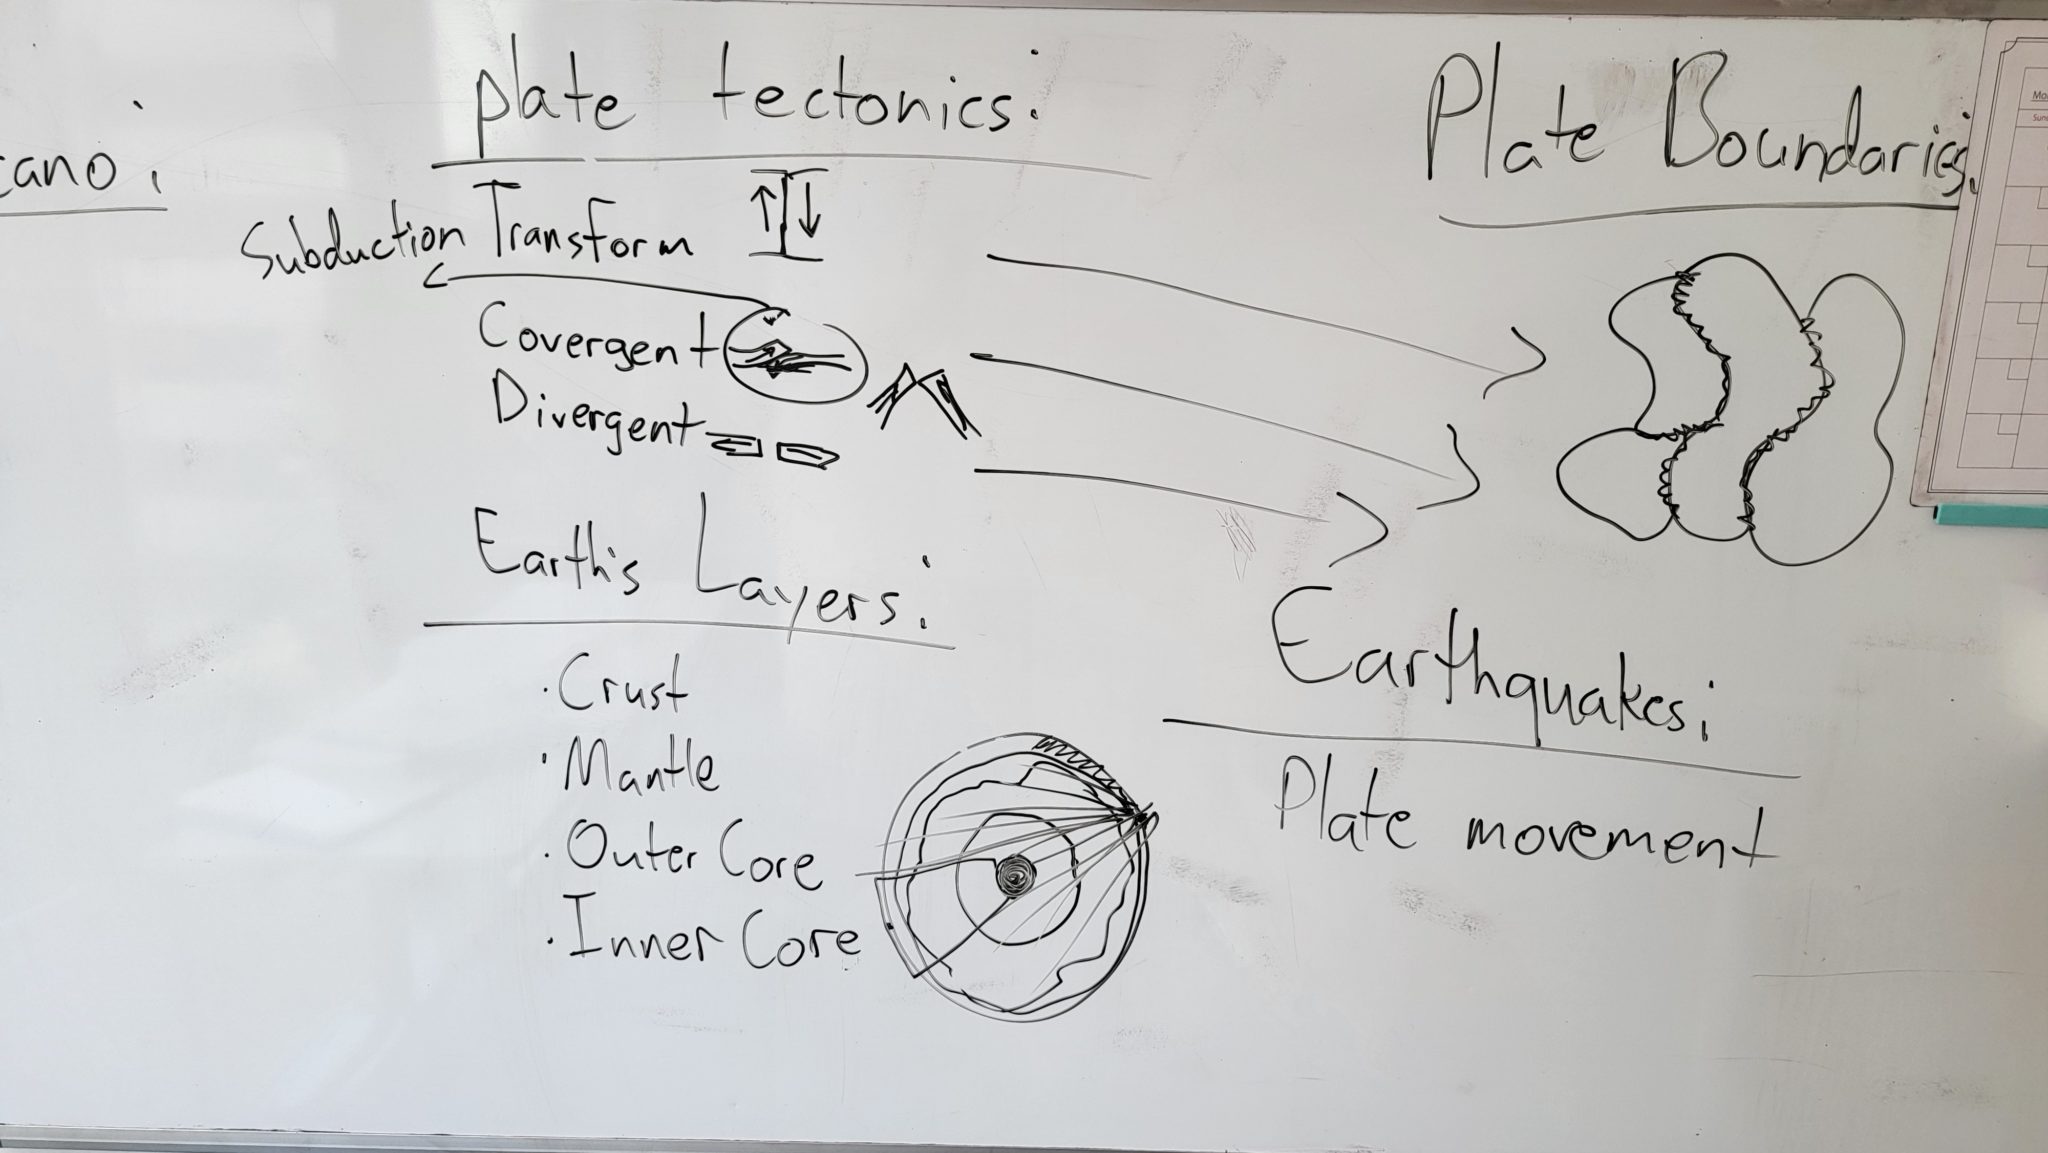 plate tectonics:
Subduction Transform
Covergent
Divergent
Earth's Layers:
· Crust
· Mantle
· Outer Core
· Inner Core
Plate Boundaries:
Earthquakes:
Plate movement